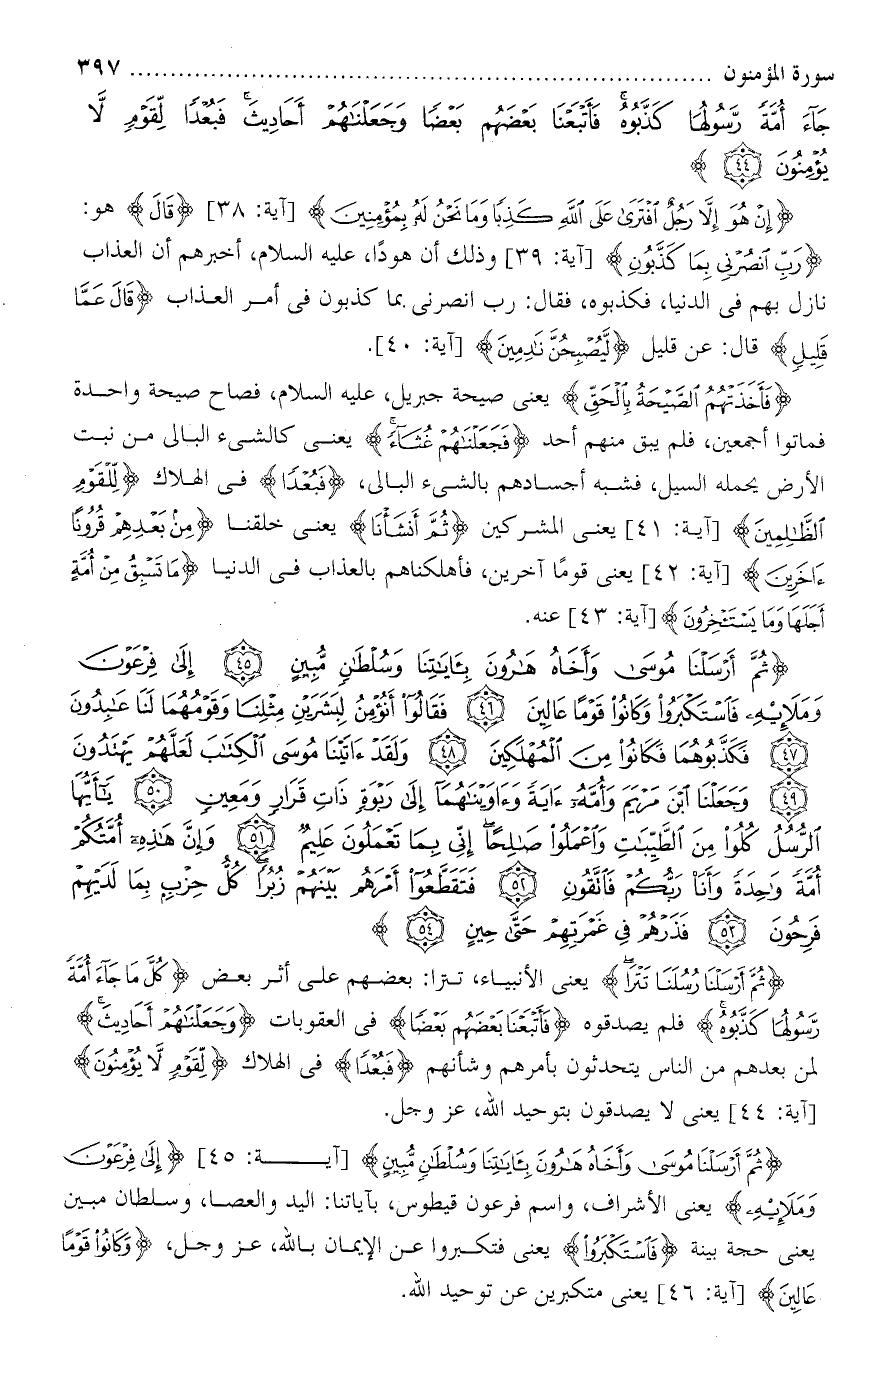 سورة المؤمنون ........................................................................ ٣٩٧
جَآءَ أُمَّةً رَّسُولُهَا كَذَّبُوهُۚ فَأَتۡبَعۡنَا بَعۡضَهُم بَعۡضٗا وَجَعَلۡنَٰهُمۡ أَحَادِيثَۚ فَبُعۡدٗا لِّقَوۡمٖ لَّا
يُؤۡمِنُونَ ٤٤ ﴾
﴿إِنۡ هُوَ إِلَّا رَجُلٌ ٱفۡتَرَىٰ عَلَى ٱللَّهِ كَذِبٗا وَمَا نَحۡنُ لَهُۥ بِمُؤۡمِنِينَ﴾ [آية: ٣٨] ﴿قَالَ﴾ هو:
﴿رَبِّ ٱنصُرۡنِي بِمَا كَذَّبُونِ﴾ [آية: ٣٩] وذلك أن هودًا، عليه السلام، أخبرهم أن العذاب
نازل بهم فى الدنيا، فكذبوه، فقال: رب انصرنى بما كذبون فى أمر العذاب ﴿قَالَ عَمَّا
قَلِيلٖ﴾ قال: عن قليل ﴿لَّيُصۡبِحُنَّ نَٰدِمِينَ﴾ [آية: ٤٠].
﴿فَأَخَذَتۡهُمُ ٱلصَّيۡحَةُ بِٱلۡحَقِّ﴾ يعنى صيحة جبريل، عليه السلام، فصاح صيحة واحدة
فماتوا أجمعين، فلم يبق منهم أحد ﴿فَجَعَلۡنَٰهُمۡ غُثَآءٗۚ﴾ يعنى كالشىء البالى من نبت
الأرض يحمله السيل، فشبه أجسادهم بالشىء البالى، ﴿فَبُعۡدٗا﴾ فى الهلاك ﴿لِّلۡقَوۡمِ
ٱلظَّٰلِمِينَ﴾ [آية: ٤١] يعنى المشركين ﴿ثُمَّ أَنشَأۡنَا﴾ يعنى خلقنا ﴿مِنۢ بَعۡدِهِمۡ قُرُونًا
ءَاخَرِينَ﴾ [آية: ٤٢] يعنى قومًا آخرين، فأهلكناهم بالعذاب فى الدنيا ﴿مَا تَسۡبِقُ مِنۡ أُمَّةٍ
أَجَلَهَا وَمَا يَسۡتَـٔۡخِرُونَ﴾ [آية: ٤٣] عنه.
﴿ثُمَّ أَرۡسَلۡنَا مُوسَىٰ وَأَخَاهُ هَٰرُونَ بِـَٔايَٰتِنَا وَسُلۡطَٰنٖ مُّبِينٍ ٤٥ إِلَىٰ فِرۡعَوۡنَ
وَمَلَإِيْهِۦ فَٱسۡتَكۡبَرُواْ وَكَانُواْ قَوۡمًا عَالِينَ ٤٦ فَقَالُوٓاْ أَنُؤۡمِنُ لِبَشَرَيۡنِ مِثۡلِنَا وَقَوۡمُهُمَا لَنَا عَٰبِدُونَ
٤٧ فَكَذَّبُوهُمَا فَكَانُواْ مِنَ ٱلۡمُهۡلَكِينَ ٤٨ وَلَقَدۡ ءَاتَيۡنَا مُوسَى ٱلۡكِتَٰبَ لَعَلَّهُمۡ يَهۡتَدُونَ
٤٩ وَجَعَلۡنَا ٱبۡنَ مَرۡيَمَ وَأُمَّهُۥٓ ءَايَةٗ وَءَاوَيۡنَٰهُمَآ إِلَىٰ رَبۡوَةٖ ذَاتِ قَرَارٖ وَمَعِينٖ ٥٠ يَٰٓأَيُّهَا
ٱلرُّسُلُ كُلُواْ مِنَ ٱلطَّيِّبَٰتِ وَٱعۡمَلُواْ صَٰلِحًاۖ إِنِّي بِمَا تَعۡمَلُونَ عَلِيمٞ ٥١ وَإِنَّ هَٰذِهِۦٓ أُمَّتُكُمۡ
أُمَّةٗ وَٰحِدَةٗ وَأَنَا۠ رَبُّكُمۡ فَٱتَّقُونِ ٥٢ فَتَقَطَّعُوٓاْ أَمۡرَهُم بَيۡنَهُمۡ زُبُرٗاۖ كُلُّ حِزۡبِۭ بِمَا لَدَيۡهِمۡ
فَرِحُونَ ٥٣ فَذَرۡهُمۡ فِي غَمۡرَتِهِمۡ حَتَّىٰ حِينٍ ٥٤ ﴾
﴿ثُمَّ أَرۡسَلۡنَا رُسُلَنَا تَتۡرَاۖ﴾ يعنى الأنبياء، تترا: بعضهم على أثر بعض ﴿كُلَّ مَا جَآءَ أُمَّةٗ
رَّسُولُهَا كَذَّبُوهُۚ﴾ فلم يصدقوه ﴿فَأَتۡبَعۡنَا بَعۡضَهُم بَعۡضٗا﴾ فى العقوبات ﴿وَجَعَلۡنَٰهُمۡ أَحَادِيثَۚ﴾
لمن بعدهم من الناس يتحدثون بأمرهم وشأنهم ﴿فَبُعۡدٗا﴾ فى الهلاك ﴿لِّقَوۡمٖ لَّا يُؤۡمِنُونَ﴾
[آية: ٤٤] يعنى لا يصدقون بتوحيد الله، عز وجل.
﴿ثُمَّ أَرۡسَلۡنَا مُوسَىٰ وَأَخَاهُ هَٰرُونَ بِـَٔايَٰتِنَا وَسُلۡطَٰنٖ مُّبِينٍ﴾ [آيـــــة: ٤٥] ﴿إِلَىٰ فِرۡعَوۡنَ
وَمَلَإِيْهِۦ﴾ يعنى الأشراف، واسم فرعون قيطوس، بآياتنا: اليد والعصا، وسلطان مبين
يعنى حجة بينة ﴿فَٱسۡتَكۡبَرُواْ﴾ يعنى فتكبروا عن الإيمان بالله، عز وجل، ﴿وَكَانُواْ قَوۡمًا
عَالِينَ﴾ [آية: ٤٦] يعنى متكبرين عن توحيد الله.